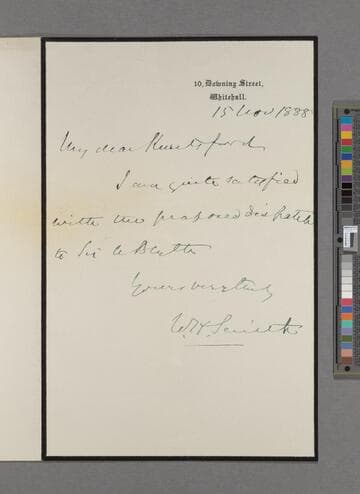 10, Downing Street,
Whitehall.
15 Nov 1888
My dear Knutsford
I am quite satisfied
with the proposed dispatch
to Sir
Yours very truly
W H Smith